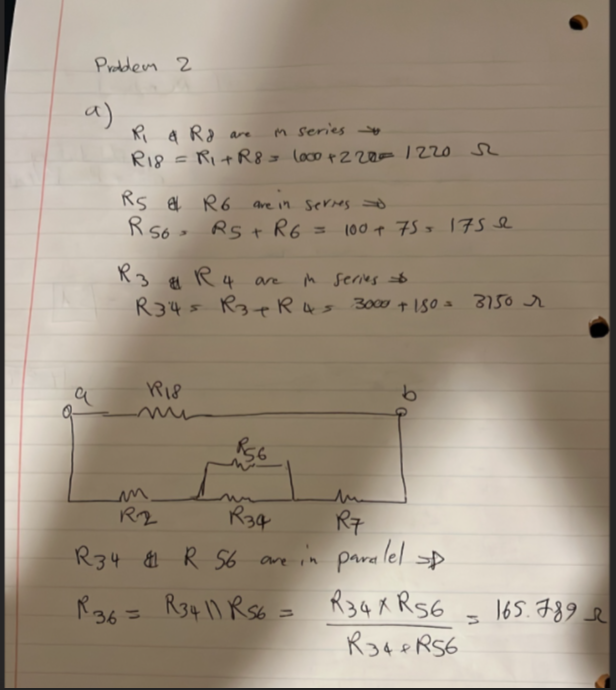 Problem 2
a)
R1 & R8 are in series ⇒
R18 = R1 + R8 = 1000 + 220 = 1220 Ω
R5 & R6 are in series ⇒
R56 = R5 + R6 = 100 + 75 = 175 Ω
R3 & R4 are in series ⇒
R34 = R3 + R4 = 3000 + 150 = 3150 Ω
a R18 b
R56
R2 R34 R7
R34 & R56 are in paralel ⇒
R36 = R34 \\ R56 = R34 x R56 / R34 + R56 = 165.789 Ω